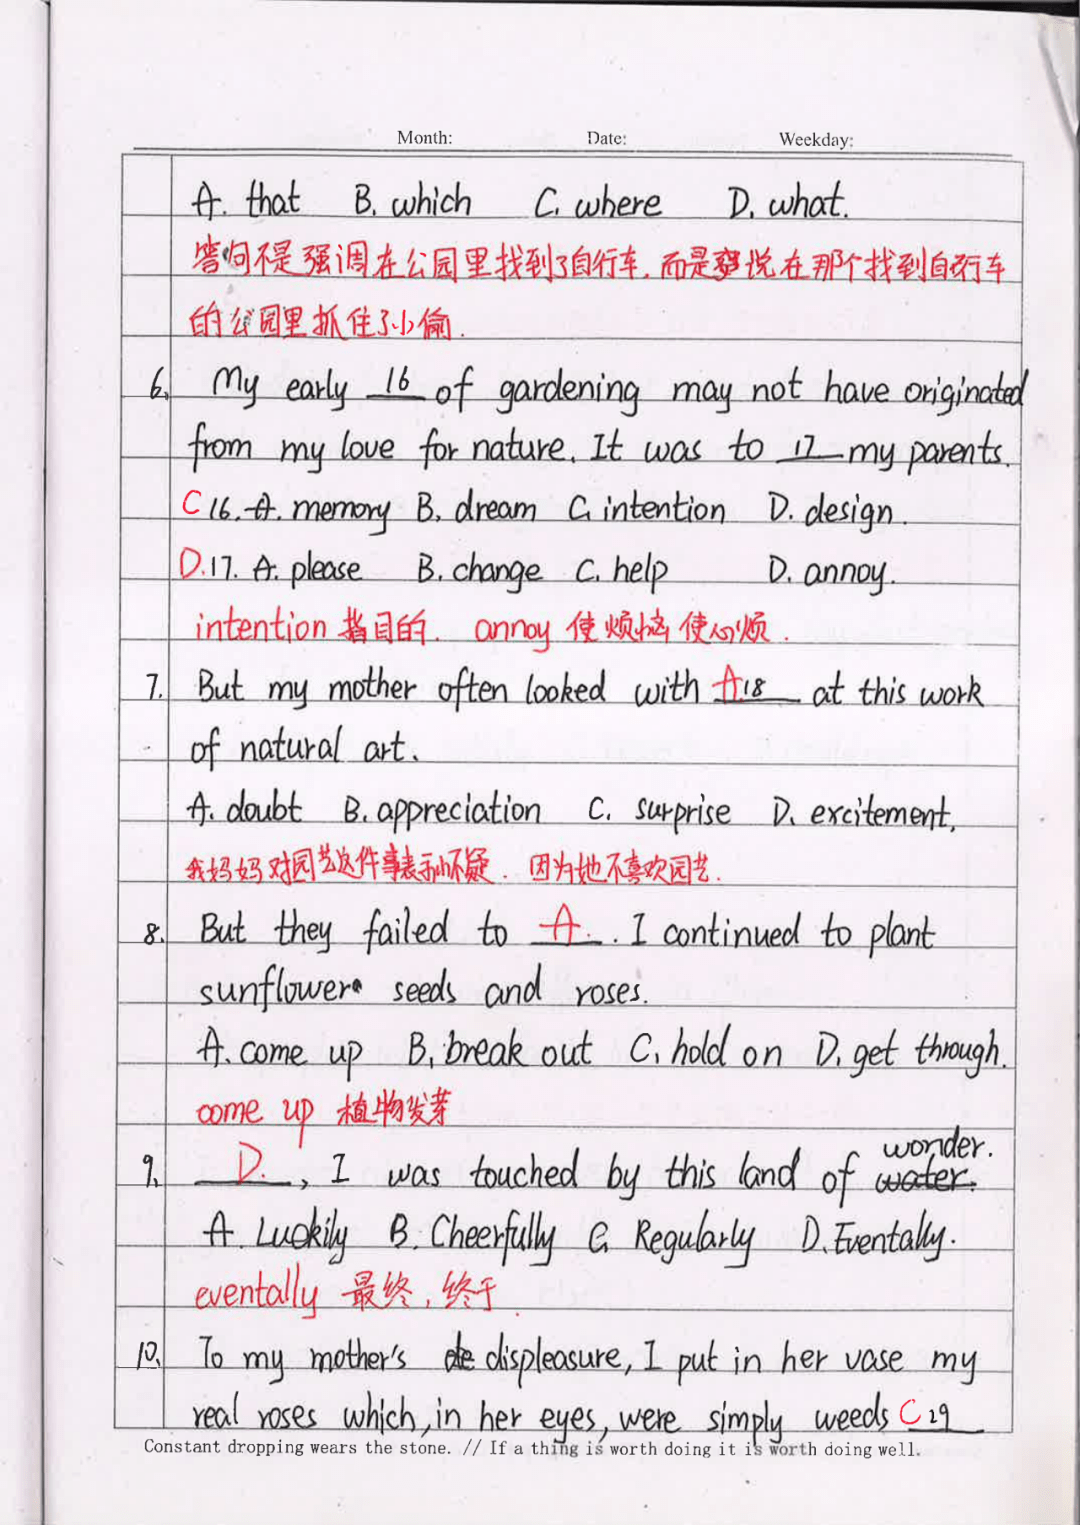 Month: Date: Weekday:
A. that B. which C. where D. what.
答句不是强调在公园里找到了自行车.而是 说在那个找到自行车
的公园里抓住了小偷.
6. My early 16 of gardening may not have originated
from my love for nature. It was to 17 my parents.
C 16. A. memory B. dream C. intention D. design.
D. 17. A. please B. change C. help D. annoy.
intention 指目的. annoy 使烦恼 使心烦.
7. But my mother often looked with A 18 at this work
of natural art.
A. doubt B. appreciation C. surprise D. excitement.
我妈妈对园艺这件事表示怀疑. 因为她不喜欢园艺.
8. But they failed to A. . I continued to plant
sunflower seeds and roses.
A. come up B. break out C. hold on D. get through.
come up 植物发芽
wonder.
9. D. , I was touched by this land of water.
A. Luckily B. Cheerfully C. Regularly D. Eventally.
eventally 最终, 终于.
10. To my mother's displeasure, I put in her vase my
real roses which, in her eyes, were simply weeds C 29
Constant dropping wears the stone. // If a thing is worth doing it is worth doing well.